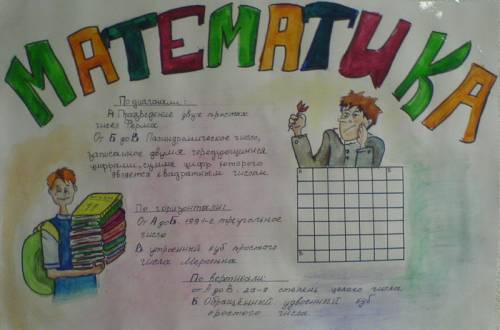 МАТЕМАТИКА
По диагонали:
А. Произведение двух простых
чисел Ферма.
От Б до В. Палиндромическое число,
записанное двумя чередующимися
цифрами, сумма цифр которого
является квадратным числом.
По горизонтали:
От А до Б. 1991-е треугольное
число
В. утроенный куб простого
числа Мерсенна.
По вертикали:
от А до В. 22-я степень целого числа.
Б. Обращённый удвоенный куб
простого числа.